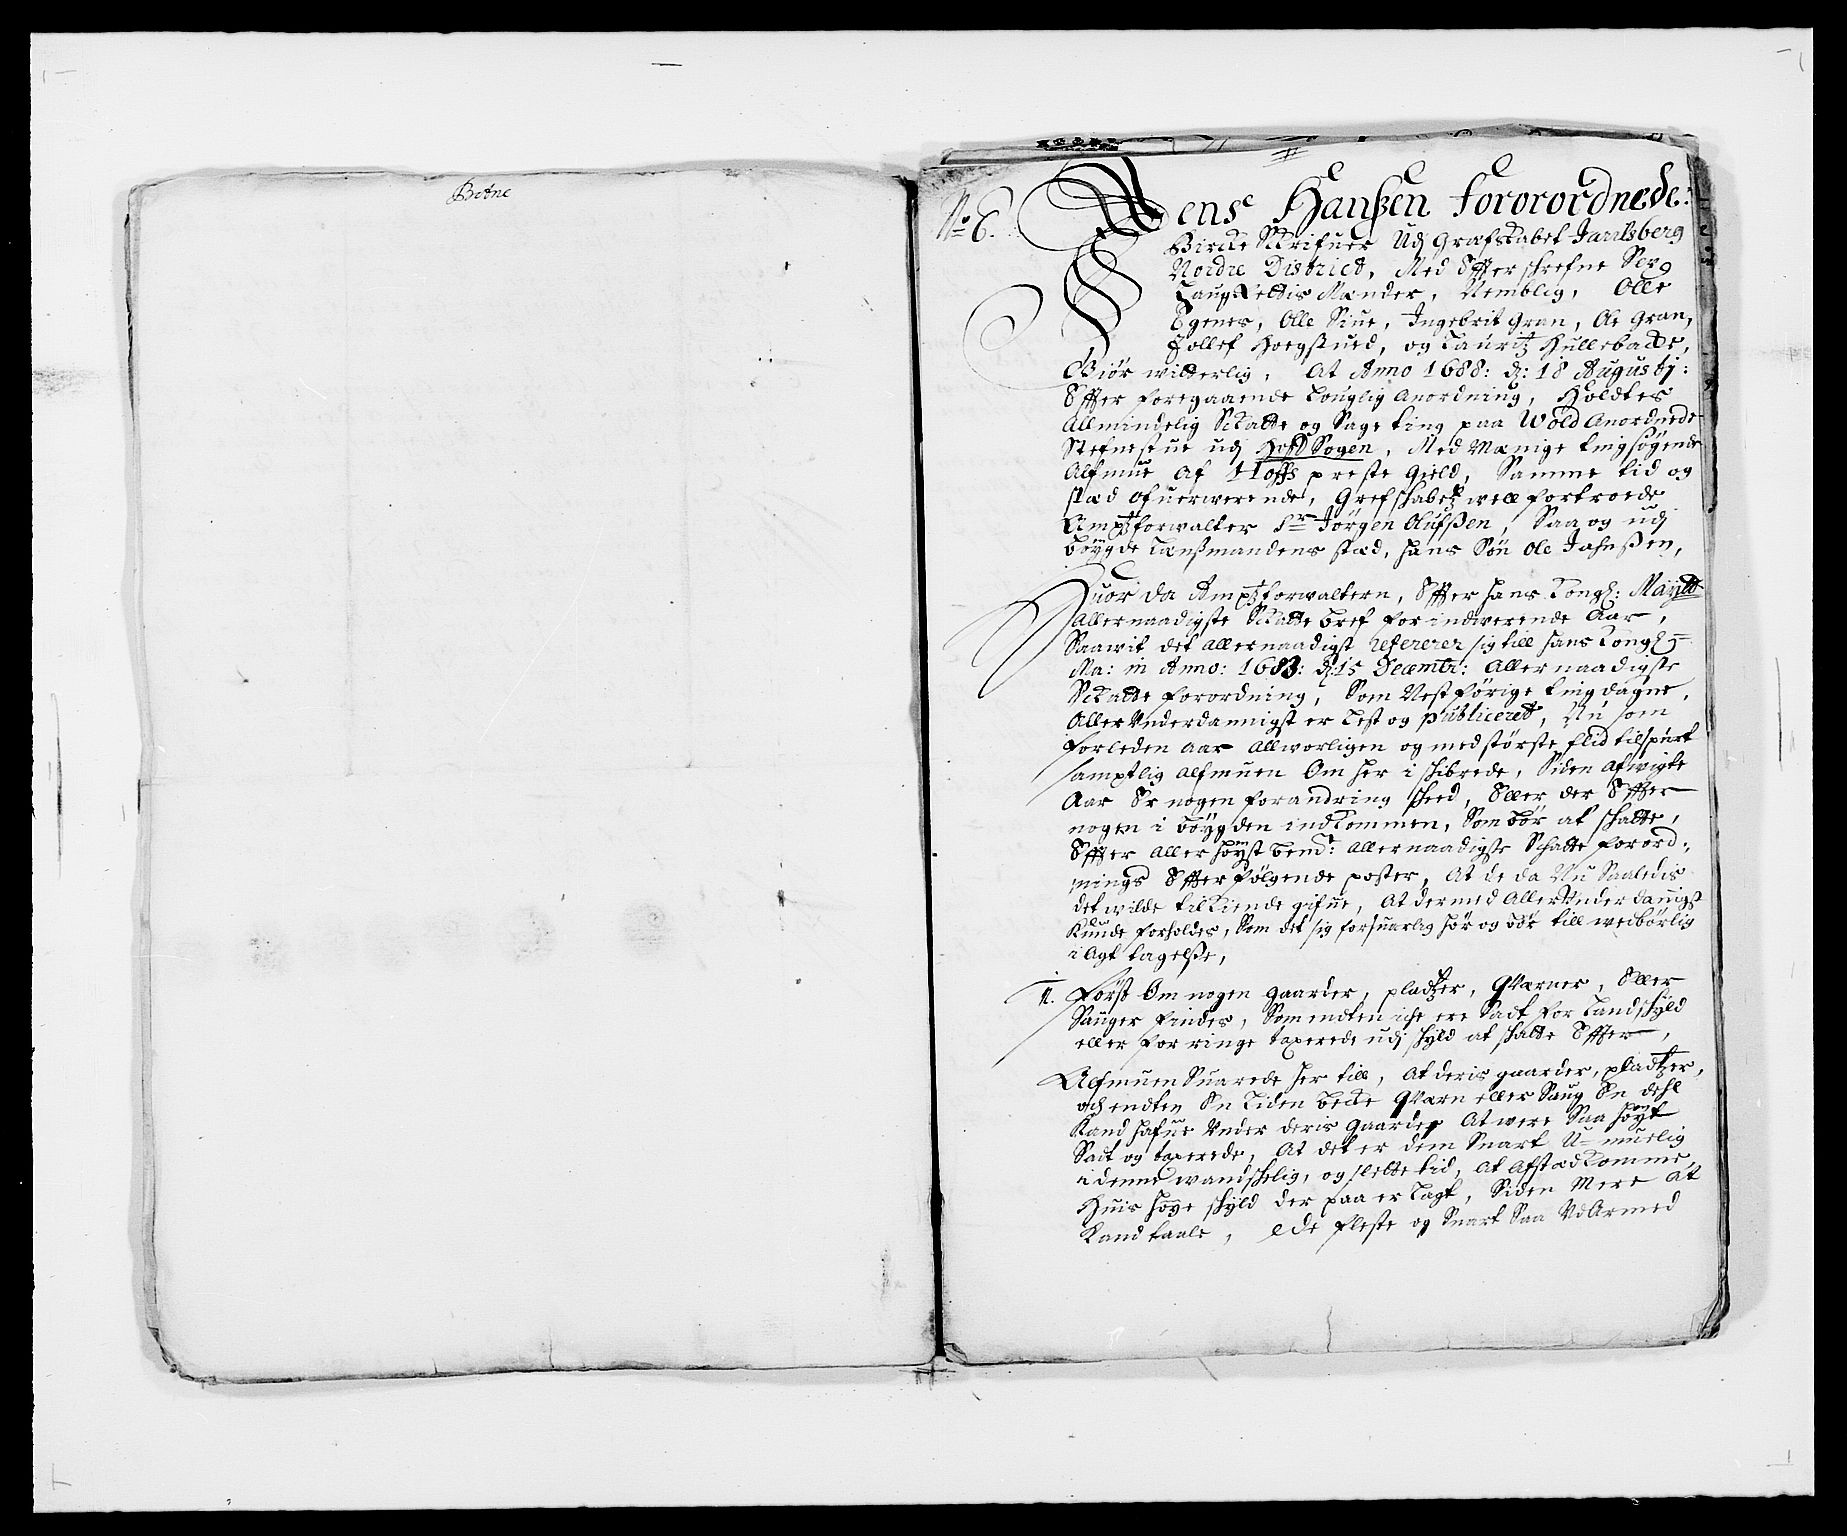 Botne
No 6.
Jens Hanßen Fororordnede:
Bircke Skrifuer Udj Grefskabet Jarilsberg
Nordre District, Med Effterskrefne Sex
Laug Rettis Mænder, Nemblig, Olle
Egenes, Olle Siue, Ingebrit Gran, Ole Gran,
Jollef Hoegsrud, og Lauritz Hullebacke,
Giør witterlig, At Anno 1688: d: 18 Augustj:
Effter foregaaende Louglig Anordning, Holdtes
Allmindelig Skatte og Sage ting paa Wold Anordnede
Stefnestue udj Hoff Sogen, Med Menige tingsøgende
Almue Af Hoffs preste Gield, Samme tid og
stæd ofuerwerende, Grefskabetz well fortroede
Amptzforwalter Sr Jørgen Olufßen, Saa og udj
bøygde Lenßmandens stæd, hans Søn Ole Jahnßen,
Huor da Amptzforwaltern, Effter hans Kongl: Mayttz
Allernaadigste Skatte bref for indwerende Aar,
Saawit det allernaadigst refererer sig till hans Kongl:
Ma: in Anno: 1683: d: 15 Decembr: Allernaadigste
Skatte forordning, Som Nestførige ting dagne,
Aller Vnderdannigst er Lest og publiceret, Nu som
forleden Aar Allworligen og med største flid tilspurt
samptlig Almuen Om her i skibrede, Siden afwigte
Aar Er nogen forandring skeed, Eller der Effter
nogen i bøygden indkommen, Som bør at skatte,
Effter Allerhøyst bemte: Allernaadigste Schatte forord-
nings Effterfølgende poster, At de da Nu Saaledis
det wilde tilkiende gifue, At dermed Aller Vnderdanigst
Kunde forholdes, Som det sig forsuarlig hør og bør till wedbørlig
i Agt tagelße,
1. Først Om nogen gaarder, pladtzer, Qværner, Eller
Sauger findes, Som endten iche ere Sadt for Landskyld
eller for ringe taxerede udj skyld at skatte Effter,
Almuen Suarede her till, At deris gaarder, pladtzer,
och endten En liden becke Qværn eller Saug En dehl
Kand hafue Vnder deris Gaarder At were Saa høyt
Sadt og taxerede, At det er dem Snart U-muelig
i denne wandskelig, og slette tid, At Afsted komme,
Huis høye skyld der paa er Lagt, Siden Mere At
Kand taale, ede fleste og Snart Saa VdArmed